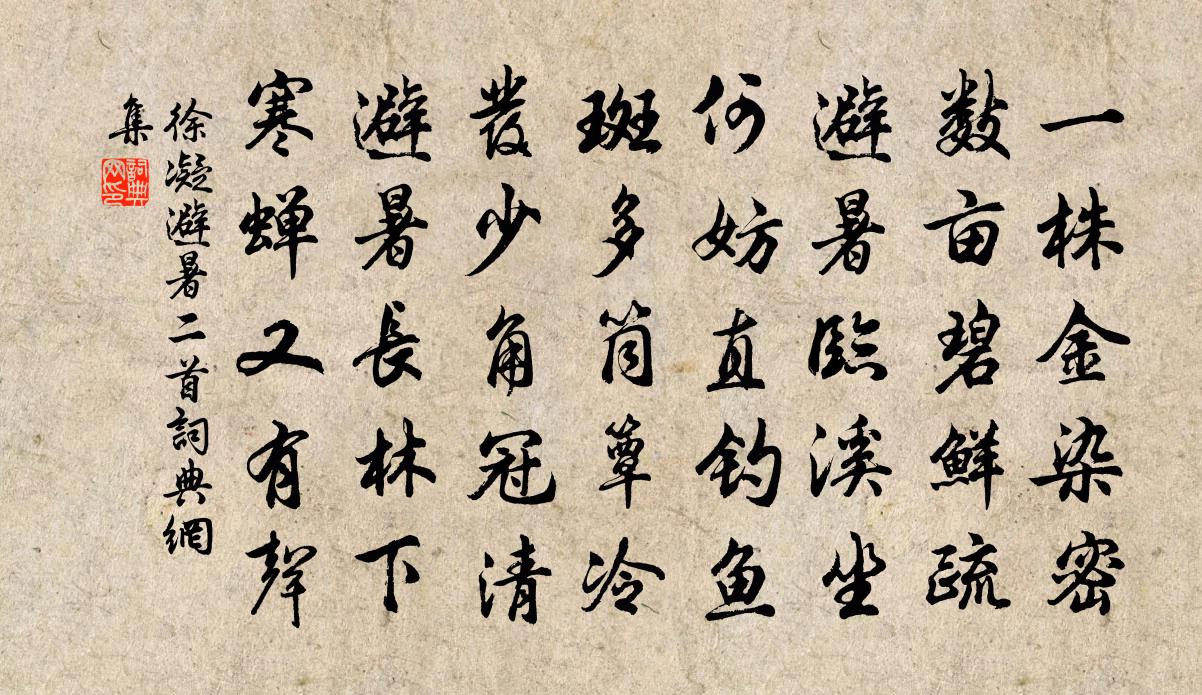 一株金染密
数亩碧鲜疏
避暑临溪坐
何妨直钓鱼
斑多筒簟冷
发少角冠清
避暑長林下
寒蝉又有聲
徐凝避暑二首詞典網
集
詞典
网印